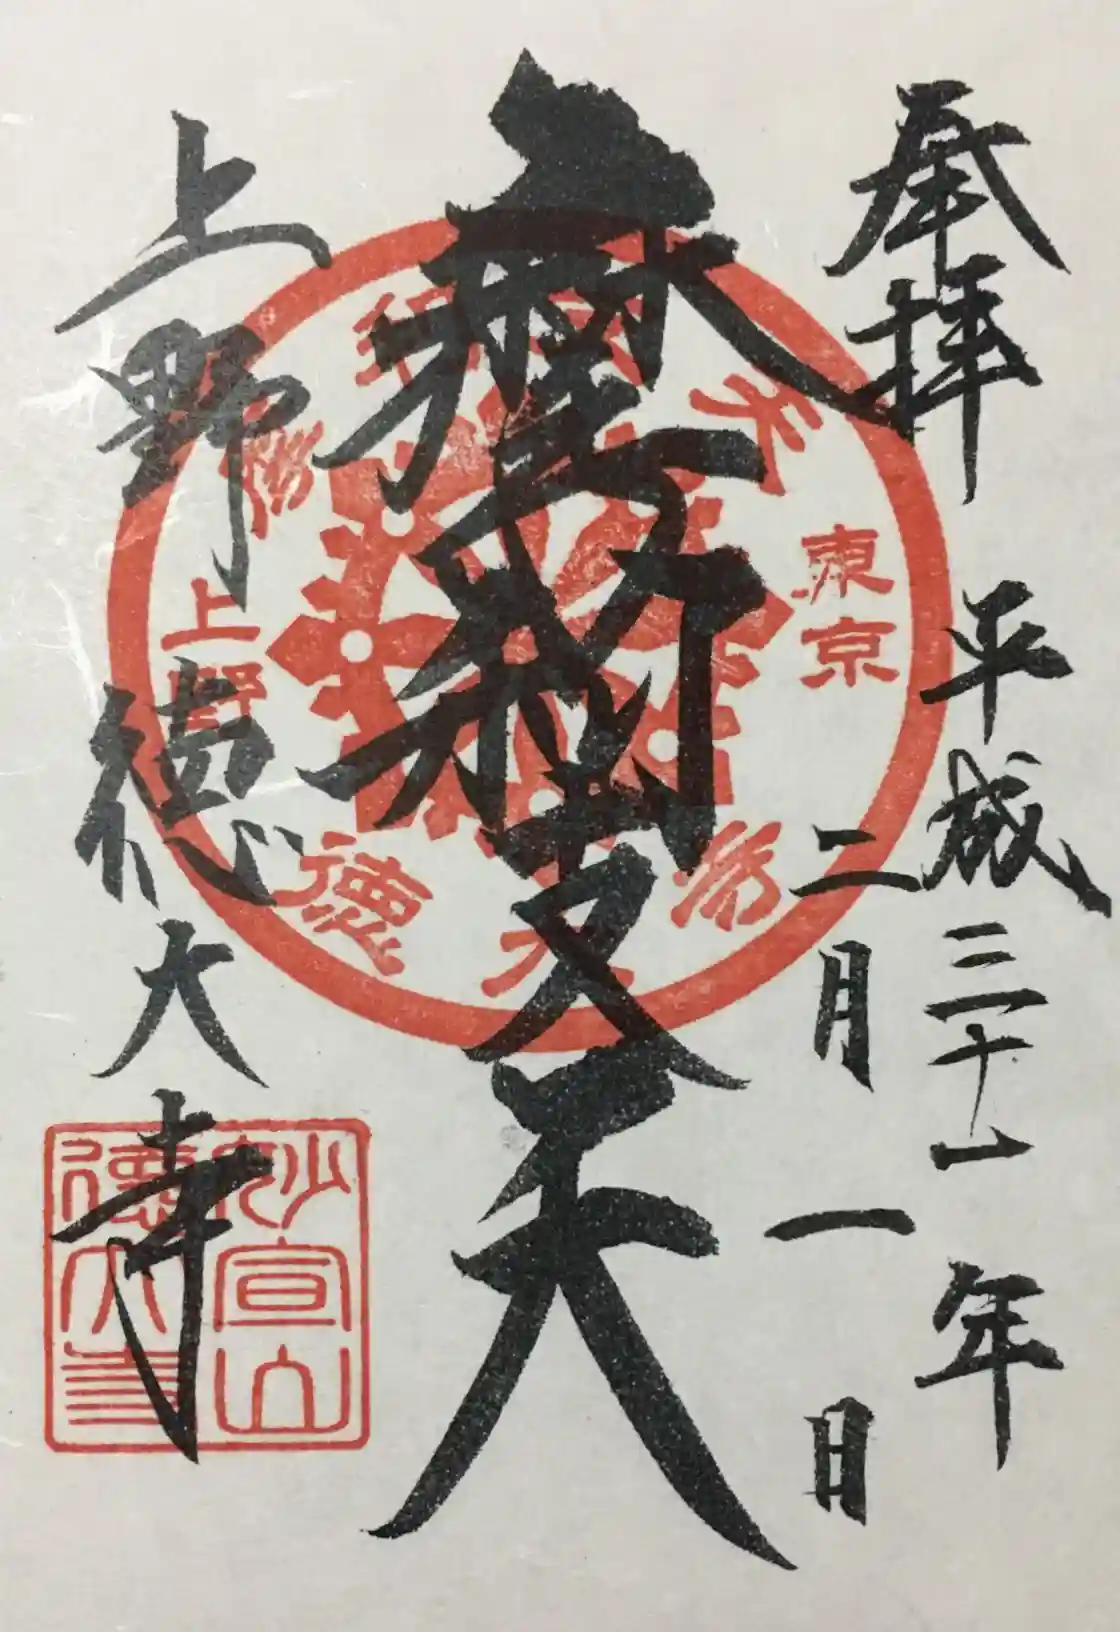 奉拝
平成三十一年
二月一日
摩利支天
上野 徳大寺
東京
摩利支天
上野
徳大寺
妙宣山
徳大寺